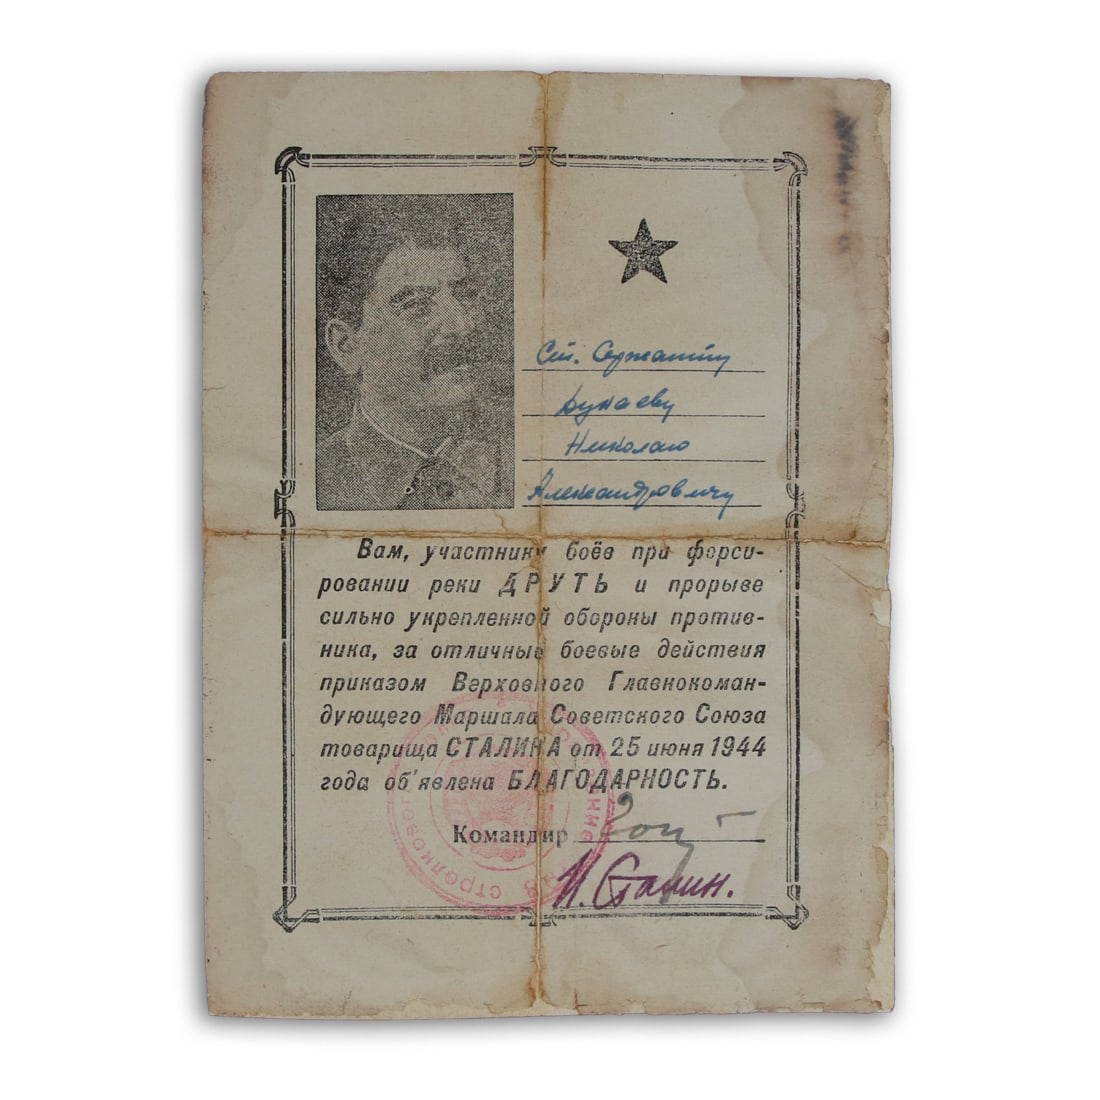 Ст. Сержанту
Дунаеву
Николаю
Александровичу
Вам, участнику боёв при форси-
ровании реки ДРУТЬ и прорыве
сильно укрепленной обороны против-
ника, за отличные боевые действия
приказом Верховного Главнокоман-
дующего Маршала Советского Союза
товарища СТАЛИНА от 25 июня 1944
года об'явлена БЛАГОДАРНОСТЬ.
Командир
И. Сталин.